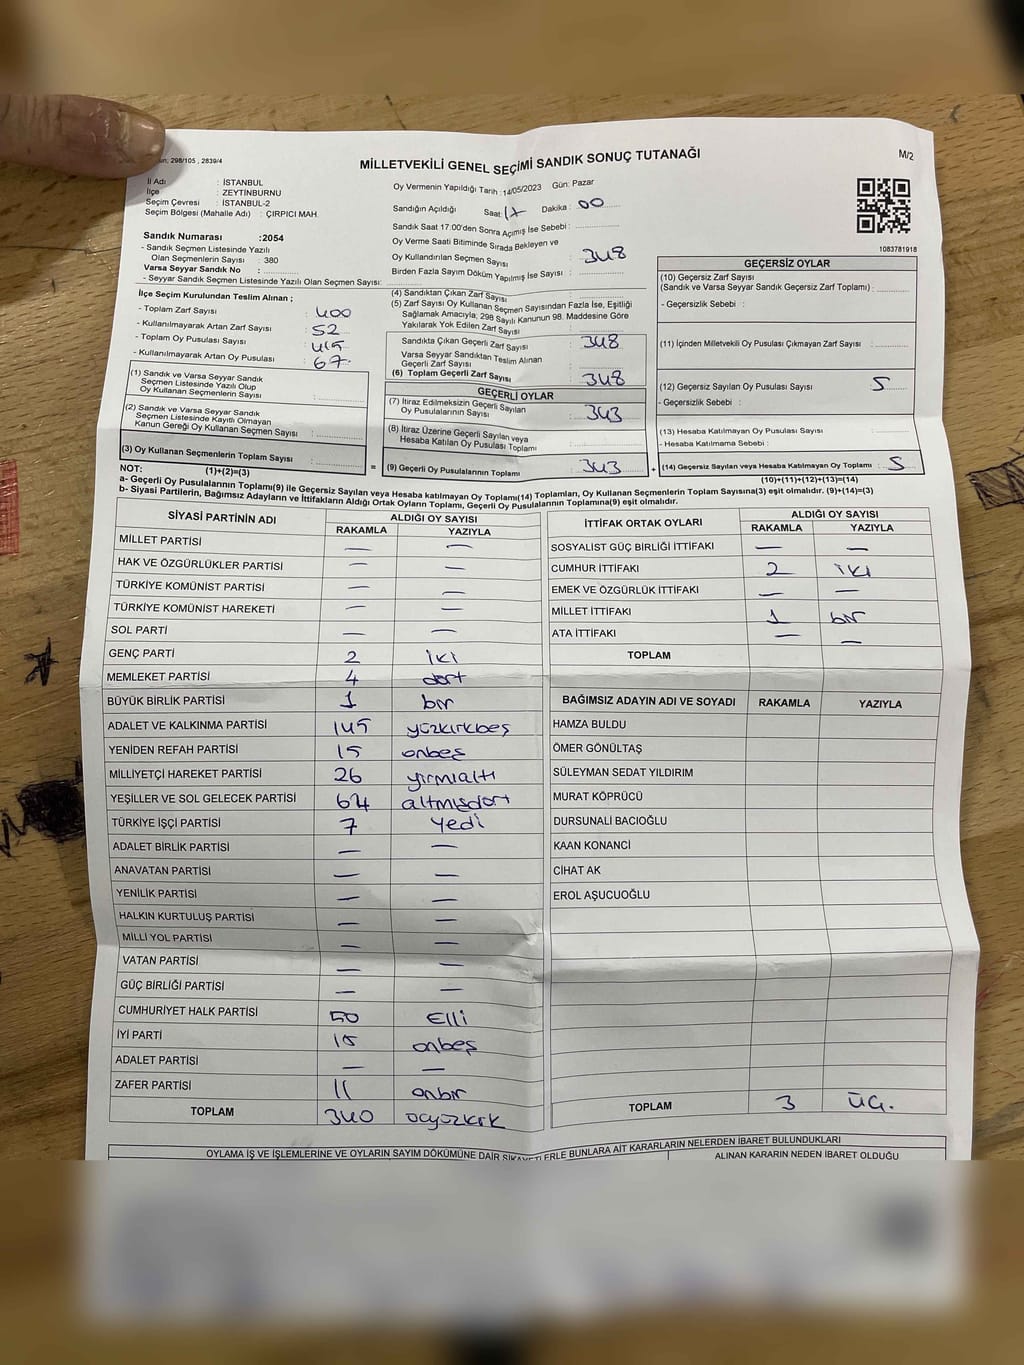 298/105 , 2839/4
MİLLETVEKİLİ GENEL SEÇİMİ SANDIK SONUÇ TUTANAĞI
M/2
İl Adı : İSTANBUL
İlçe : ZEYTİNBURNU
Seçim Çevresi : İSTANBUL-2
Seçim Bölgesi (Mahalle Adı) : ÇIRPICI MAH.
Sandık Numarası :2054
- Sandık Seçmen Listesinde Yazılı
Olan Seçmenlerin Sayısı : 380
Varsa Seyyar Sandık No :
- Seyyar Sandık Seçmen Listesinde Yazılı Olan Seçmen Sayısı:
Oy Vermenin Yapıldığı Tarih :14/05/2023 Gün: Pazar
Sandığın Açıldığı Saat: 17 Dakika : 00
Sandık Saat 17.00'den Sonra Açılmış İse Sebebi :
Oy Verme Saati Bitiminde Sırada Bekleyen ve
Oy Kullandırılan Seçmen Sayısı : 348
Birden Fazla Sayım Döküm Yapılmış İse Sayısı :
1083781918
İlçe Seçim Kurulundan Teslim Alınan ;
- Toplam Zarf Sayısı : 400
- Kullanılmayarak Artan Zarf Sayısı : 52
- Toplam Oy Pusulası Sayısı : 415
- Kullanılmayarak Artan Oy Pusulası : 67
(1) Sandık ve Varsa Seyyar Sandık
Seçmen Listesinde Yazılı Olup
Oy Kullanan Seçmenlerin Sayısı :
(2) Sandık ve Varsa Seyyar Sandık
Seçmen Listesinde Kayıtlı Olmayan
Kanun Gereği Oy Kullanan Seçmen Sayısı :
(3) Oy Kullanan Seçmenlerin Toplam Sayısı :
(1)+(2)=(3)
(4) Sandıktan Çıkan Zarf Sayısı :
(5) Zarf Sayısı Oy Kullanan Seçmen Sayısından Fazla İse, Eşitliği
Sağlamak Amacıyla; 298 Sayılı Kanunun 98. Maddesine Göre
Yakılarak Yok Edilen Zarf Sayısı :
Sandıkta Çıkan Geçerli Zarf Sayısı : 348
Varsa Seyyar Sandıktan Teslim Alınan
Geçerli Zarf Sayısı :
(6) Toplam Geçerli Zarf Sayısı : 348
GEÇERLİ OYLAR
(7) İtiraz Edilmeksizin Geçerli Sayılan
Oy Pusulalarının Sayısı : 343
(8) İtiraz Üzerine Geçerli Sayılan veya
Hesaba Katılan Oy Pusulası Toplamı :
= (9) Geçerli Oy Pusulalarının Toplamı : 343 +
GEÇERSİZ OYLAR
(10) Geçersiz Zarf Sayısı
(Sandık ve Varsa Seyyar Sandık Geçersiz Zarf Toplamı) :
- Geçersizlik Sebebi :
(11) İçinden Milletvekili Oy Pusulası Çıkmayan Zarf Sayısı :
(12) Geçersiz Sayılan Oy Pusulası Sayısı : 5
- Geçersizlik Sebebi :
(13) Hesaba Katılmayan Oy Pusulası Sayısı :
- Hesaba Katılmama Sebebi :
(14) Geçersiz Sayılan veya Hesaba Katılmayan Oy Toplamı : 5
(10)+(11)+(12)+(13)=(14)
NOT:
a- Geçerli Oy Pusulalarının Toplamı(9) ile Geçersiz Sayılan veya Hesaba katılmayan Oy Toplamı(14) Toplamları, Oy Kullanan Seçmenlerin Toplam Sayısına(3) eşit olmalıdır. (9)+(14)=(3)
b- Siyasi Partilerin, Bağımsız Adayların ve İttifakların Aldığı Ortak Oyların Toplamı, Geçerli Oy Pusulalarının Toplamına(9) eşit olmalıdır.
SİYASİ PARTİNİN ADI ALDIĞI OY SAYISI
RAKAMLA YAZIYLA
MİLLET PARTİSİ — —
HAK VE ÖZGÜRLÜKLER PARTİSİ — —
TÜRKİYE KOMÜNİST PARTİSİ — —
TÜRKİYE KOMÜNİST HAREKETİ — —
SOL PARTİ — —
GENÇ PARTİ 2 iki
MEMLEKET PARTİSİ 4 dört
BÜYÜK BİRLİK PARTİSİ 1 bir
ADALET VE KALKINMA PARTİSİ 145 yüzkırkbeş
YENİDEN REFAH PARTİSİ 15 onbeş
MİLLİYETÇİ HAREKET PARTİSİ 26 yirmialtı
YEŞİLLER VE SOL GELECEK PARTİSİ 64 altmışdört
TÜRKİYE İŞÇİ PARTİSİ 7 yedi
ADALET BİRLİK PARTİSİ — —
ANAVATAN PARTİSİ — —
YENİLİK PARTİSİ — —
HALKIN KURTULUŞ PARTİSİ — —
MİLLİ YOL PARTİSİ — —
VATAN PARTİSİ — —
GÜÇ BİRLİĞİ PARTİSİ — —
CUMHURİYET HALK PARTİSİ 50 Elli
İYİ PARTİ 15 onbeş
ADALET PARTİSİ — —
ZAFER PARTİSİ 11 onbir
TOPLAM 340 üçyüzkırk
İTTİFAK ORTAK OYLARI ALDIĞI OY SAYISI
RAKAMLA YAZIYLA
SOSYALİST GÜÇ BİRLİĞİ İTTİFAKI — —
CUMHUR İTTİFAKI 2 iki
EMEK VE ÖZGÜRLÜK İTTİFAKI — —
MİLLET İTTİFAKI 1 bir
ATA İTTİFAKI — —
TOPLAM
BAĞIMSIZ ADAYIN ADI VE SOYADI RAKAMLA YAZIYLA
HAMZA BULDU
ÖMER GÖNÜLTAŞ
SÜLEYMAN SEDAT YILDIRIM
MURAT KÖPRÜCÜ
DURSUNALİ BACIOĞLU
KAAN KONANCİ
CİHAT AK
EROL AŞUCUOĞLU
TOPLAM 3 ÜÇ.
OYLAMA İŞ VE İŞLEMLERİNE VE OYLARIN SAYIM DÖKÜMÜNE DAİR ŞİKAYETLERLE BUNLARA AİT KARARLARIN NELERDEN İBARET BULUNDUKLARI
ALINAN KARARIN NEDEN İBARET OLDUĞU